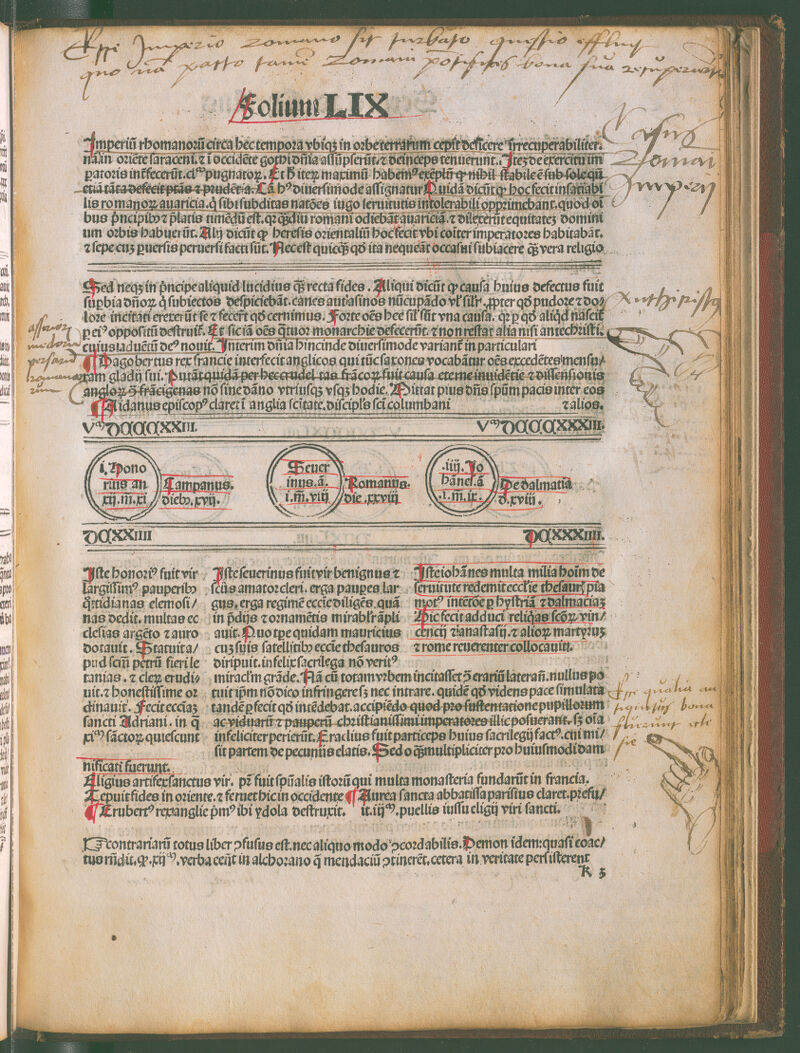 Folium LIX
Imperiũ rhomanorũ circa hec tempora vbiqʒ in orbe terrarum cepit deficere ⁊ irrecuperabiliter.
nã in oriẽte saraceni. ⁊ i occidẽte gothi dñia assũpserũt. ⁊ deinceps tenuerunt. Itez de exercitu im
peratoris intfecerũt. cũ pugnatoꝝ. Et h̃ itez maximũ habemꝰ exẽplũ ꝙ nihil stabile ẽ sub sole qũ
etiã tãta defecit ptãs ⁊ prudẽtia. Cã hꝰ diuersimode assignatur Quidã dicũt ꝙ hoc fecit insatiabi
lis romanoꝝ auaricia. q̃ sibi subditas natões iugo seruitutis intolerabili opprimebant. quod oi
bus p̃ncipibꝰ ⁊ p̃latis timẽdũ est. qꝛ q̃diu romani odiebãt auariciã. ⁊ dilexerũt equitatez domini
um orbis habuerũt. Alij dicũt ꝙ heresis orientaliũ hoc fecit vbi cõiter imperatores habitabãt.
⁊ sepe cuz ꝑuersis peruersi facti sũt. Necest quicqʒ qd ita nequeãt occasui subiacere q̃ʒ vera religio
Sed neqʒ in p̃ncipe aliquid lucidius q̃ʒ recta fides. Aliqui dicũt ꝙ causa huius defectus fuit
suꝑbia dñoꝝ q̃ subiectos despiciebãt. eanes autasinos nũcupãdo vl̃ silr̃. ꝓpter qd pudore ⁊ do
lore incitati erexerũt se ⁊ fecerũt qd cernimus. Forte oẽs hee sil̃ sũt vna causa. qꝛ ꝑ qd aliqd nascit̃
ꝑ eiꝰ oppositũ destruit̃. Et sic iã oẽs q̃tuor monarchie defecerũt. ⁊ non restat alia nisi antechristi.
cuius aduẽtũ deꝰ nouit. Interim dñia hincinde diuersimode variant̃ in particulari
Dagobertus rex francie interfecit anglicos qui tũc saxones vocabãtur oẽs excedẽtes mensu
ram gladij sui. Putãt quidã per hec crudelitas frãcoꝝ fuit causa eterne inuidẽtie ⁊ dissensionis
angloꝝ ꝯ̃ frãcigenas nõ sine dãno vtriusqʒ vsqʒ hodie. Mittat pius dñs spũm pacis inter eos
Aidanus episcopꝰ claret i anglia scitate. discipls sct̃i columbani
⁊ alios.
Vᵐ DCCCCXXIII.
Vᵐ DCCCCXXXIII.
i. Hono
rius an
xij. m̃. xi
Campanus.
diebꝰ. xvij.
Seuer
inus. ã.
i. m̃. viij
Romanus.
die. xxviij
.iiij. Jo
hãnes. ã
.i. m̃. ix.
De dalmatia
d̃. xviij.
DCXXIIII
DCXXXIIII.
Iste honoriꝰ fuit vir
largissimꝰ pauperibꝰ
q̃ttidianas elemosi
nas dedit. multas ec
clesias argẽto ⁊ auro
dotauit. Statuit a
pud scm̃ petrũ fieri le
tanias. ⁊ cleꝝ erudi
uit. ⁊ honestissime or
dinauit. Fecit eccĩaʒ
sancti Adriani. in q̃
xiᵐ sãctoꝝ quiescunt
Iste seuerinus fuit vir benignus ⁊
scũs amator cleri. erga paupes lar
gus. erga regimẽ eccĩe diligẽs. quã
in p̃dijs ⁊ ornamẽtis mirabl̃r ãpli
auit. Quo tp̃e quidam mauricius
cuz suis satellitibꝰ eccĩe thesauros
diripuit. infelix sacrilega nõ veritꝰ
miraclm̃ grãde. Nã cũ totam vrbem incitasset ꝯ̃ erariũ laterañ. nullus po
tuit ip̃m nõ dico infringere sʒ nec intrare. quidẽ qd videns pace simulata
tandẽ ꝑfecit qd intẽdebat. accipiẽdo quod pro sustentatione pupillorum
ac viduarũ ⁊ pauperũ christianissimi imperatores illic posuerant. sʒ oĩa
infeliciter perierũt. Eraclius fuit particeps huius sacrilegij fact'. cui mi
sit partem de pecunijs elatis. Sed o q̃ʒ multipliciter pro huiusmodi dam
nificati fuerunt.
Iste iohãnes multa milia hoĩm de
seruitute redemit ecclĩe thesauꝝ pia
motꝰ intẽtõe ꝑ hystriã ⁊ dalmaciaʒ
Hic fecit adduci reliqas scõꝝ vin
cencij ⁊ anastasij. ⁊ alioꝝ martyruʒ
⁊ rome reuerenter collocauit.
Eligius artifex sanctus vir. pr̃ fuit spũalis istorũ qui multa monasteria fundarũt in francia.
Tepuit fides in oriente. ⁊ feruet hic in occidente Aurea sancta abbatissa parisius claret. prefu
Erubertꝰ rex anglie p̃mꝰ ibi ydola destruxit. it. iijᶜ. puellis iussu eligij viri sancti.
contrariarũ totus liber ꝯfusus est. nec aliquo modo ꝯcordabilis. Demon idem: quasi coac
tus rñdit. ꝙ. xijᵐ. verba eẽnt in alchorano q̃ mendaciũ ꝯtinerẽt. cetera in veritate persisterent
K 3